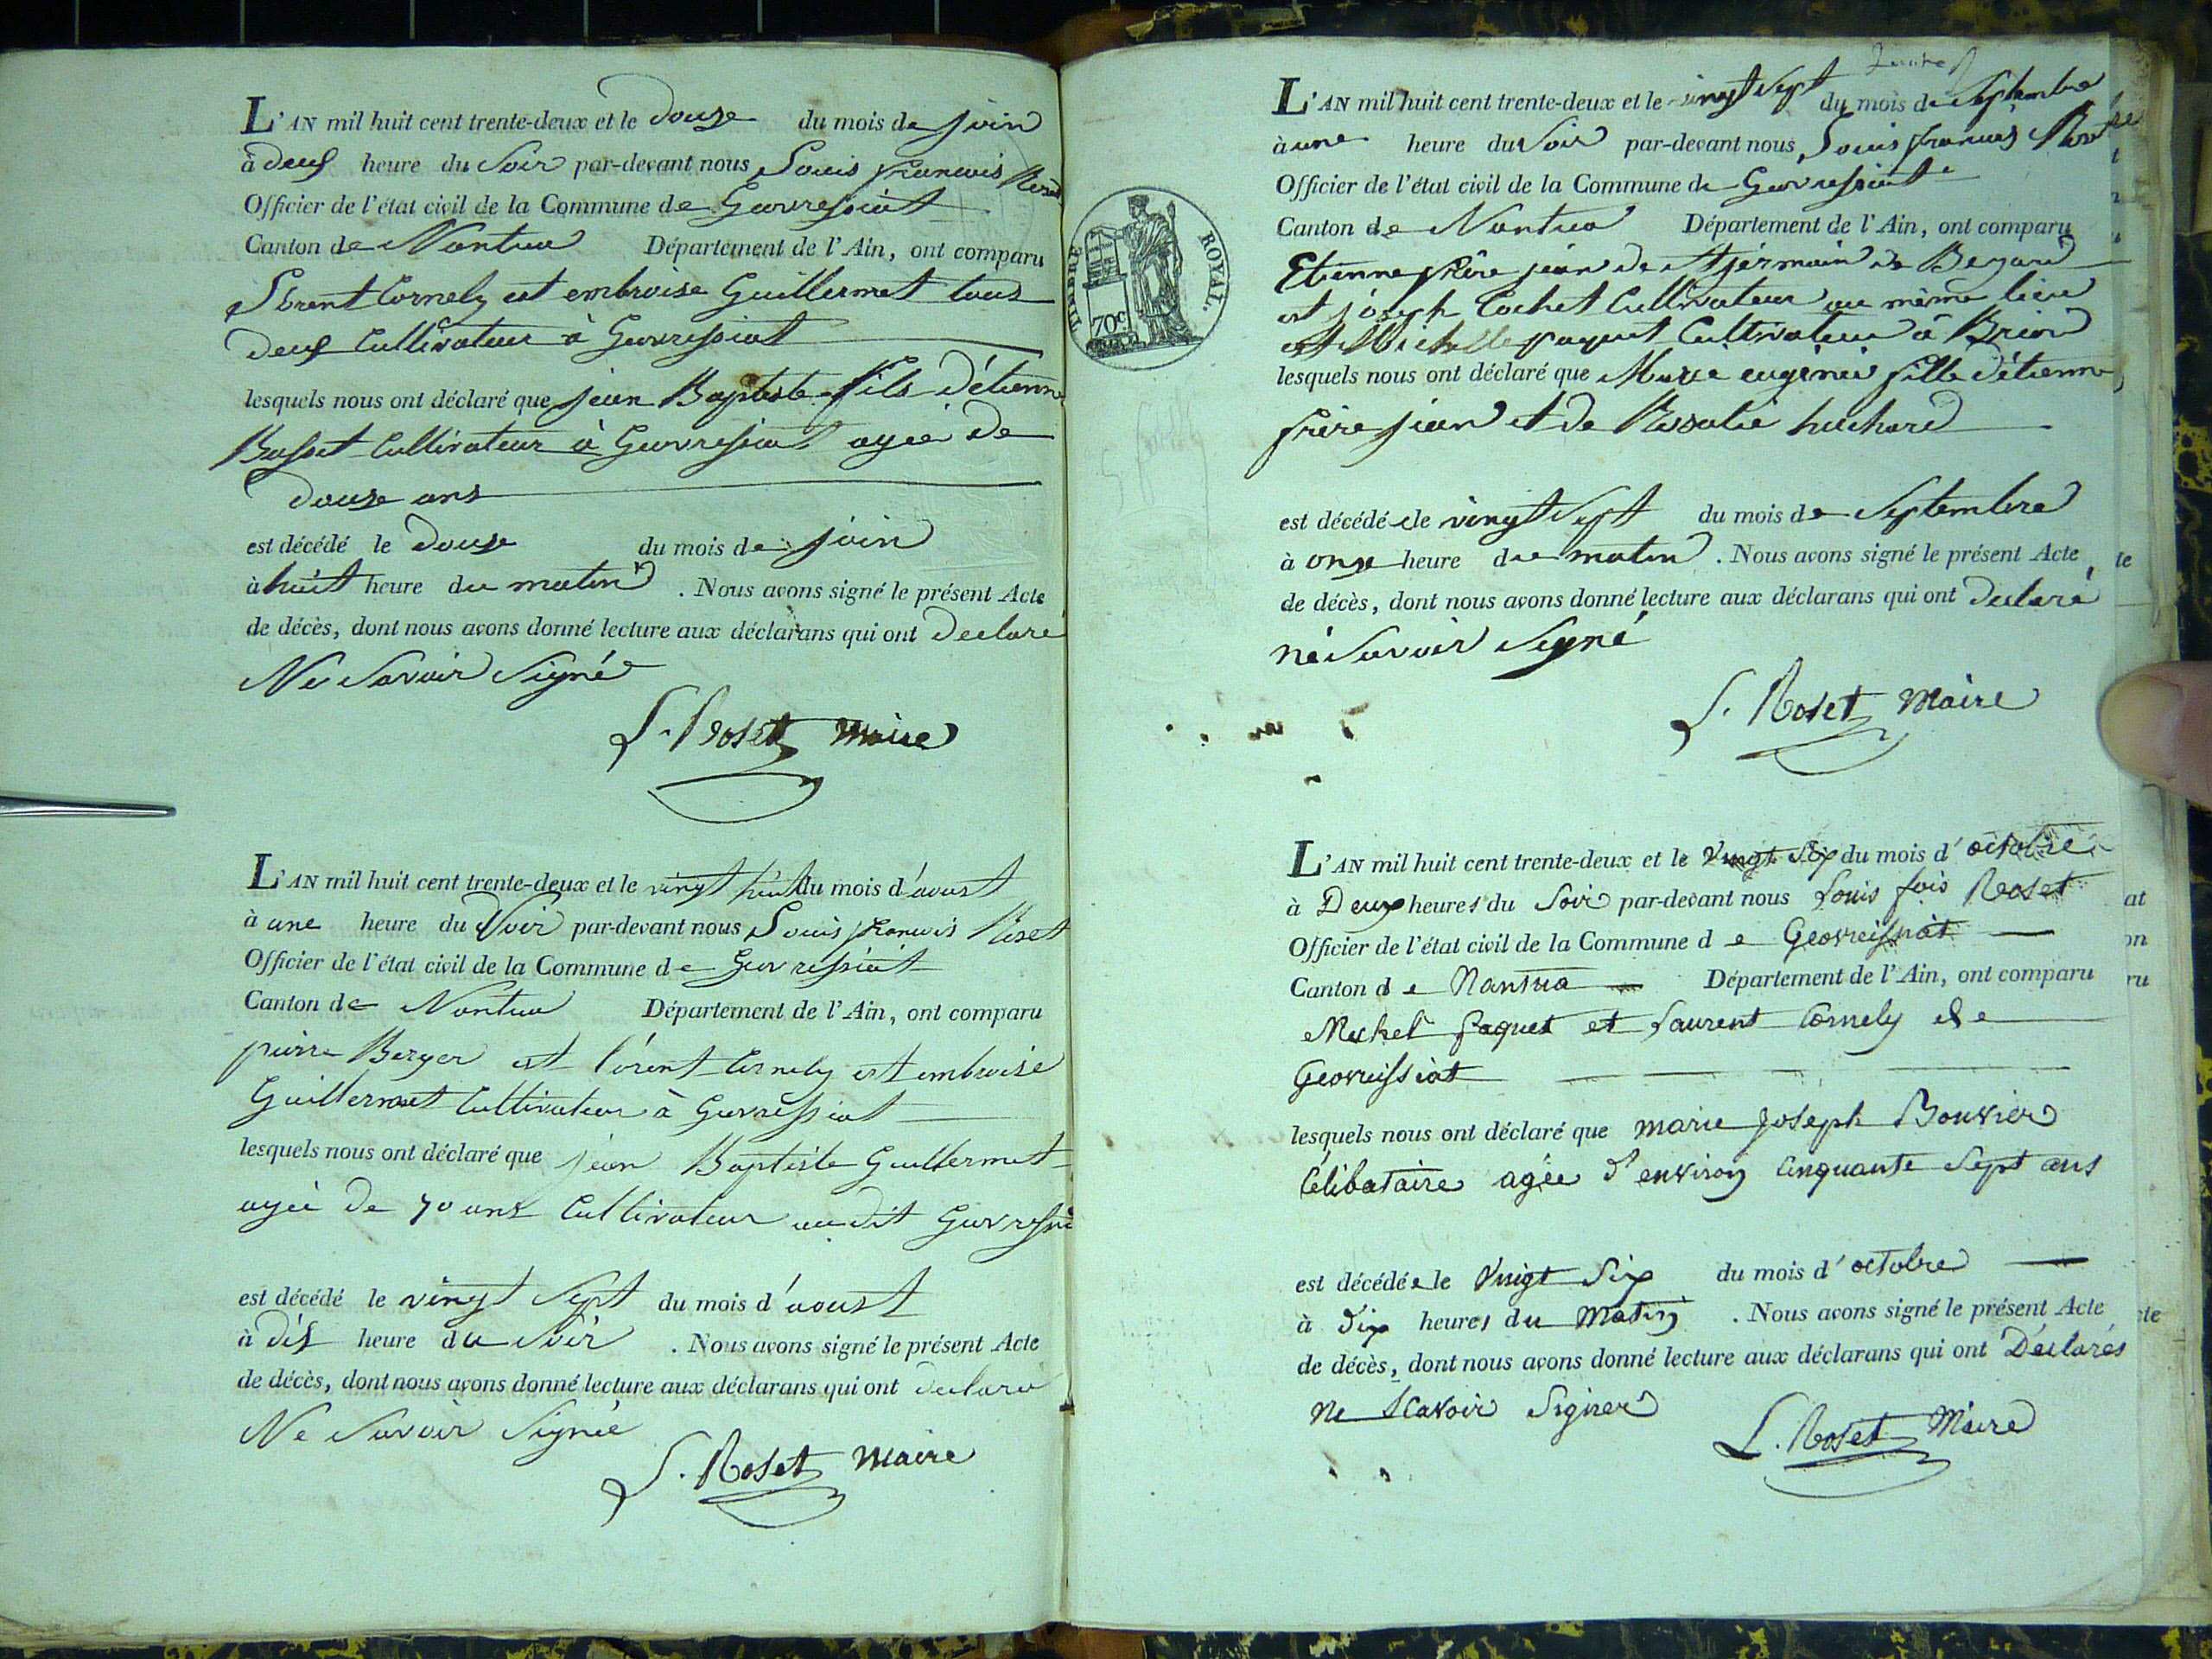 L'AN mil huit cent trente-deux et le douze du mois de juin
à deus heure du Soir par-devant nous Louis francois Roset
Officier de l'état civil de la Commune de Gevressiat
Canton de Nantua Département de l'Ain, ont comparu
Lorent Cornely est embroise Guillermet tous
deus Cultivateur à Gevressiat
lesquels nous ont déclaré que jean Baptiste fils d'étienne
Busset Cultivateur à Gevressiat ageé de
douze ans
est décédé le douze du mois de juin
à huit heure du matin . Nous avons signé le présent Acte
de décès, dont nous avons donné lecture aux déclarans qui ont declaré
Ne Savoir Signé
L. Roset Maire
L'AN mil huit cent trente-deux et le vingt huit du mois d'aoust
à une heure du Soir par-devant nous Louis francois Roset
Officier de l'état civil de la Commune de Gevressiat
Canton de Nantua Département de l'Ain, ont comparu
pierre Berger est lorent Cornely est embroise
Guillermet Cultivateur à Gevressiat
lesquels nous ont déclaré que jean Baptiste Guillermet
ageé de 70 ans Cultivateur au dit Gevressia
est décédé le vingt Sept du mois d'aoust
à dis heure du Soir . Nous avons signé le présent Acte
de décès, dont nous avons donné lecture aux déclarans qui ont declaré
Ne Savoir Signée
L. Roset Maire
TIMBRE ROYAL.
70c
L'AN mil huit cent trente-deux et le vingt Sept du mois de Septembre
à une heure du Soir par-devant nous Louis francois Roset
Officier de l'état civil de la Commune de Gevressiat
Canton de Nantua Département de l'Ain, ont comparu
Etienne frère jean de St jermain de Beyard
est joseph Cochet Cultivateur au même lieu
est Michelle paquet Cultivateur à Brion
lesquels nous ont déclaré que Marie eugénie fille d'étienne
frère jean et de Rosalie huchard
est décédé le vingt Sept du mois de Septembre
à onze heure du matin . Nous avons signé le présent Acte
de décès, dont nous avons donné lecture aux déclarans qui ont declaré
né Savoir Signé
L. Roset Maire
L'AN mil huit cent trente-deux et le Vingt Six du mois d'octobre
à Deux heures du Soir par-devant nous Louis fois Roset
Officier de l'état civil de la Commune de Geovreissiat
Canton de Nantua Département de l'Ain, ont comparu
Michel paquet et Laurent Cornely de
Geovreissiat
lesquels nous ont déclaré que marie Joseph Bouvier
Célibataire agée d'environ Cinquante Sept ans
est décédée le Vingt Six du mois d'octobre
à dix heures du Matin . Nous avons signé le présent Acte
de décès, dont nous avons donné lecture aux déclarans qui ont Déclarés
ne Scavoir Signer
L. Roset Maire